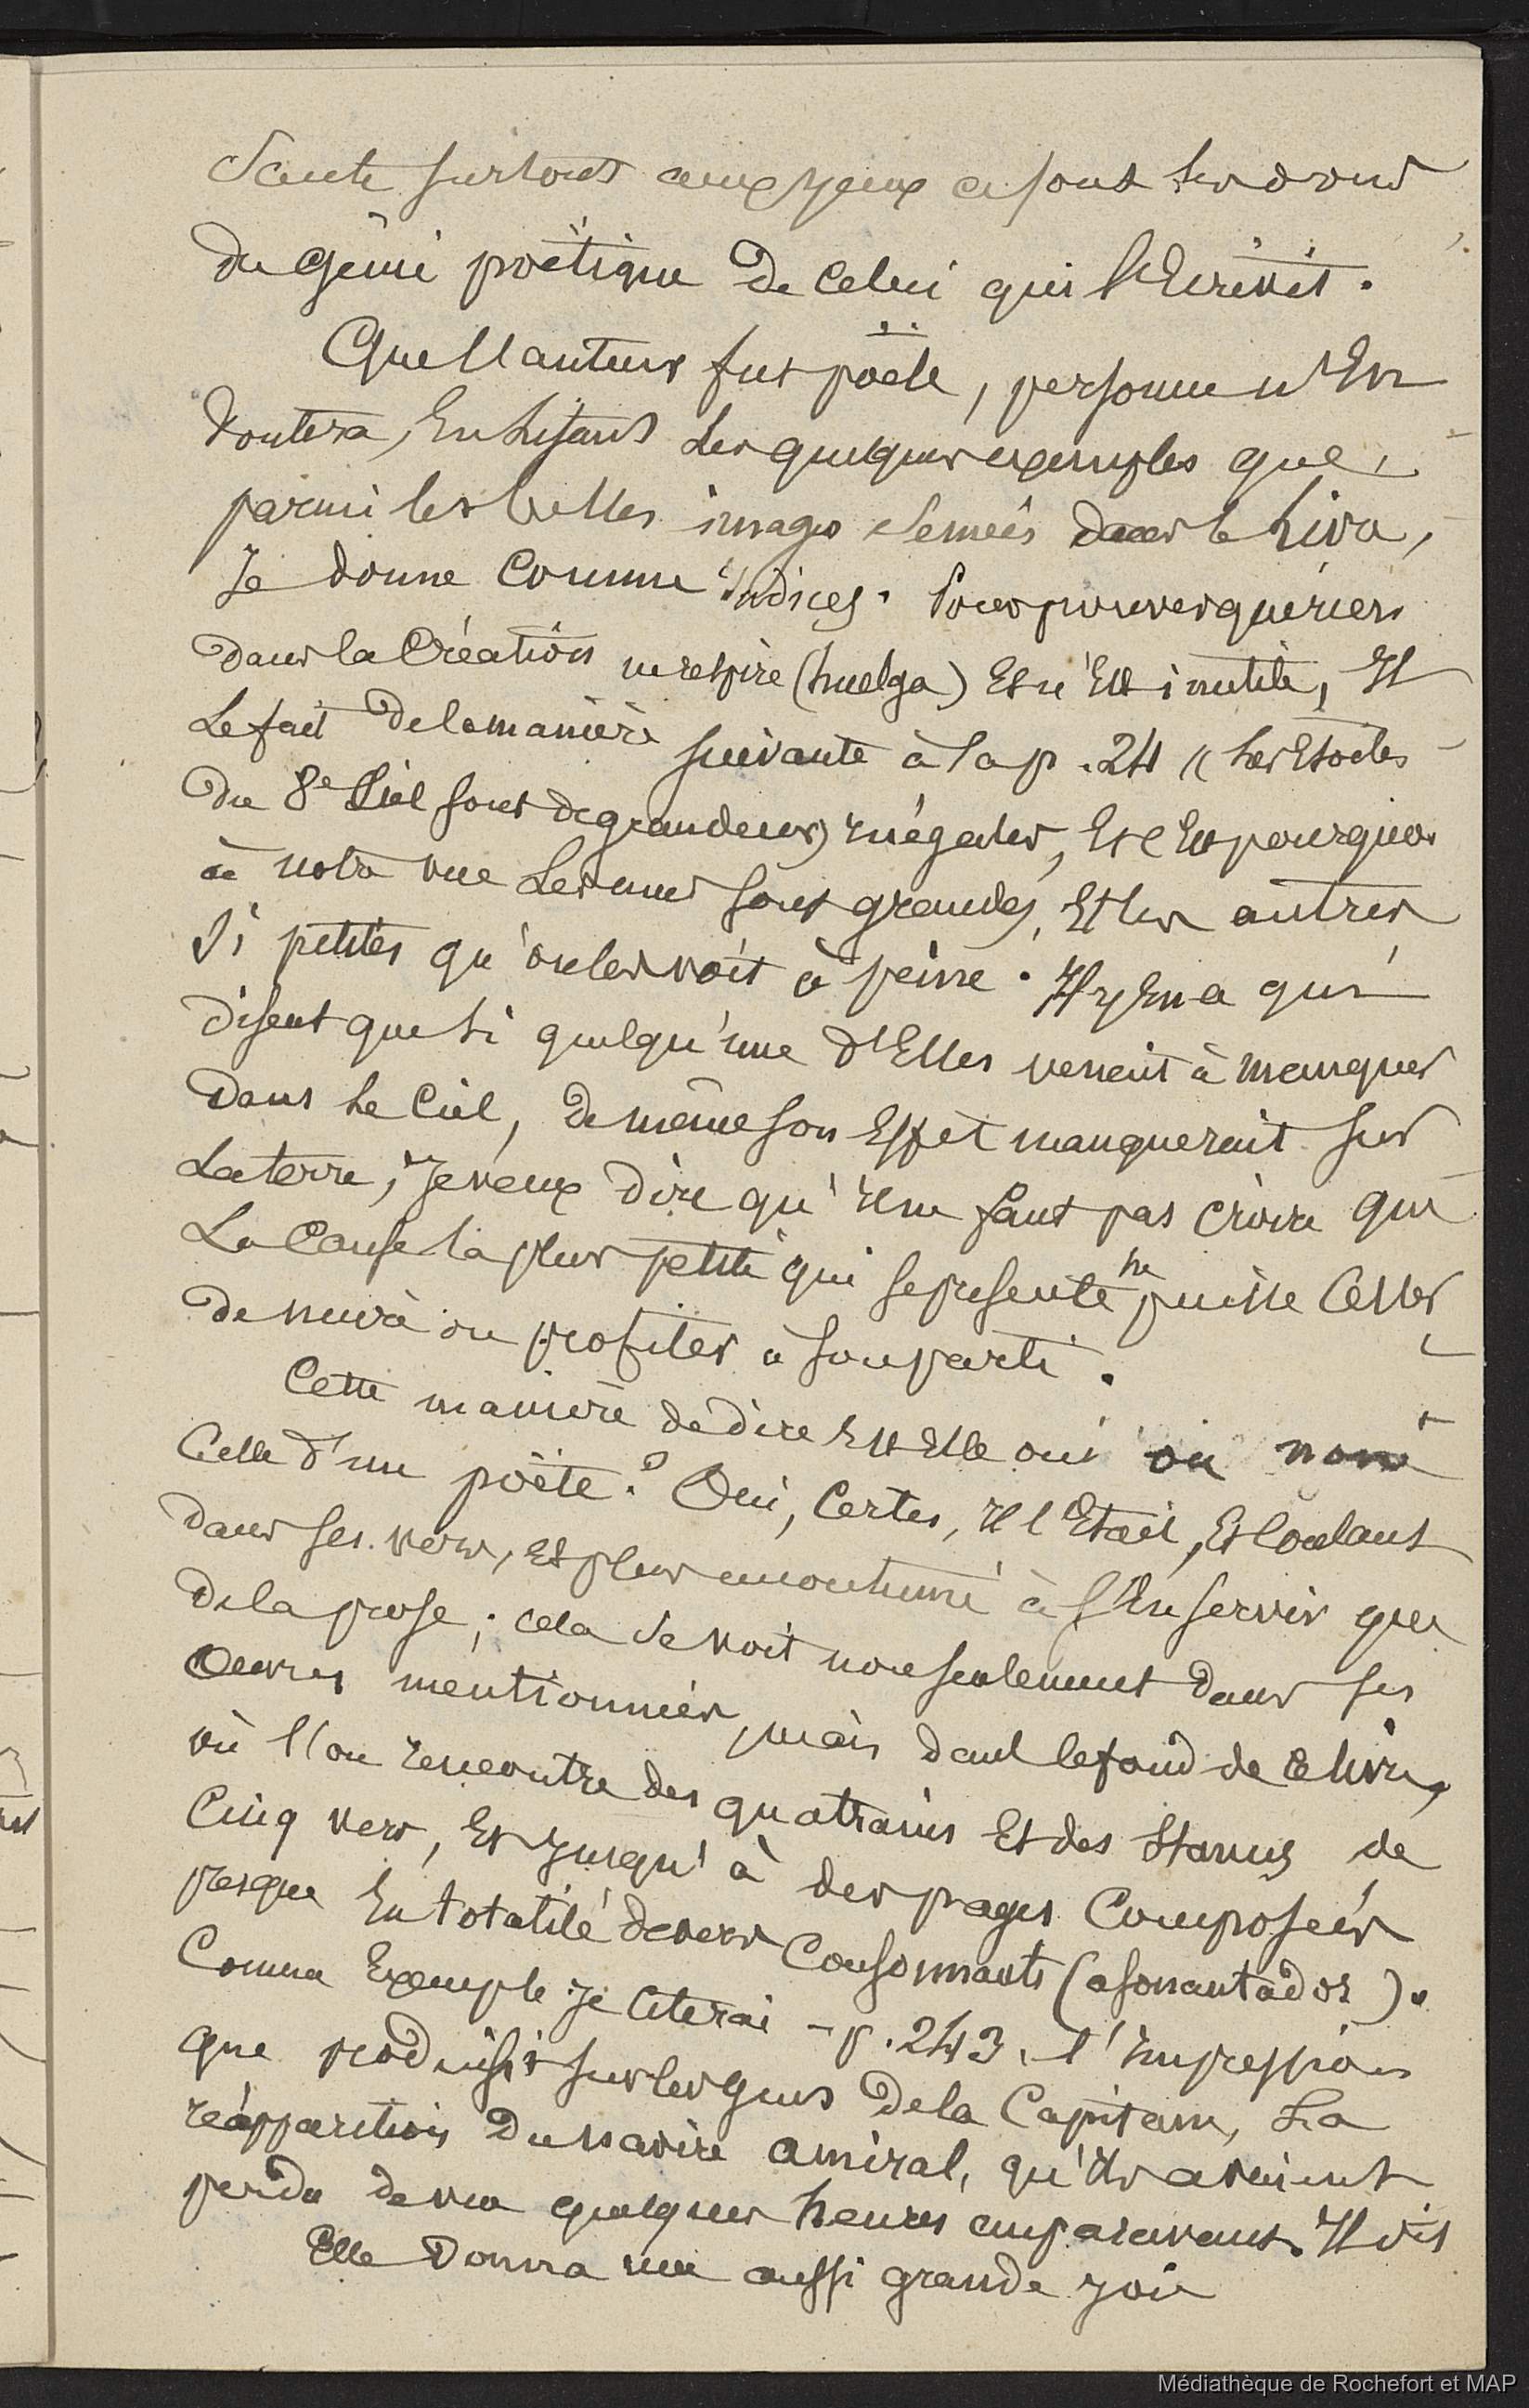 Saute surtout aux yeux ce sont les dons
du génie poëtique de celui qui l'Ecrivit.
Que l'auteur fut poëte, personne n'En
doutera, En lisant les quelques exemples que,
parmi les belles images semées dans le livre,
Je donne comme indices. Pour prouver que rien
dans la Création ne respire (huelga) Et n'Est inutile, Il
le fait de la manière suivante à la p. 24 « les Etoiles
du 8e Ciel sont de grandeurs inégales, Et c'Est pourquoi
à notre vue les unes sont grandes, Et les autres
si petites qu'on les voit à peine. Il y En a qui
disent que si quelqu'une d'Elles venait à manquer
dans le Ciel, de même son Effet manquerait sur
la terre, Je veux dire qu'il ne faut pas croire que
la cause la plus petite qui se présente ne puisse cesser
de nuire ou profiter à son parti.
Cette manière de dire Est Elle oui ou non
Celle d'un poëte? Oui, Certes, Il l'Etait, Et coulant
dans ses vers, Et plus accoutumé à s'En servir que
de la prose; cela se voit non seulement dans ses
Oeuvres mentionnées, mais dans le fond de ce livre,
où l'on rencontre des quatrains Et des Stances de
Cinq vers, Et jusqu'à des pages Composées
presque En totalité de vers Consonnants (asonantados).
Comme Exemple je citerai - p. 243, l'impression
que produisit sur les gens de la Capitane, la
réapparition du navire amiral, qu'ils avaient
perdu de vue quelques heures auparavant. Il dit
Elle donna une aussi grande joie
Médiathèque de Rochefort et MAP